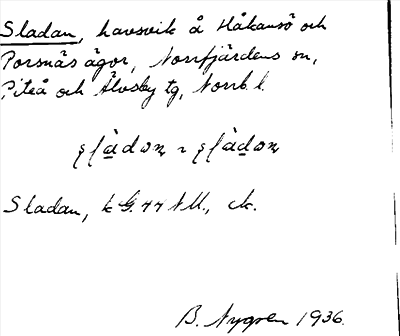 Sladan, havsvik å Håkansö och
Porsnäs ägor, Norrfjärdens sn,
Piteå och Älvsby tg, Norrb. l.
Sladan, k G. 44 NU., ck.
B. Nygren 1936.